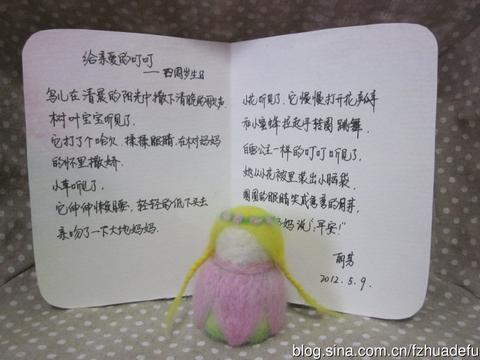 给亲爱的叮叮
——四周岁生日
鸟儿在清晨的阳光中撒下清脆的歌声
树叶宝宝听见了,
它打了个哈欠 揉揉眼睛 在树妈妈
的怀里撒娇
小草听见了,
它伸伸懒腰, 轻轻的低下头去
亲吻了一下大地妈妈.
小花听见了 它慢慢打开花
和小蜜蜂拉起手转圈 跳舞
白雪公主一样的叮叮听见了,
她从小花被里露出小脑袋,
圆圆的眼睛笑成弯弯的月芽,
妈妈说:“早安!”
丽芳
2012. 5. 9.
blog.sina.com.cn/fzhuadefu